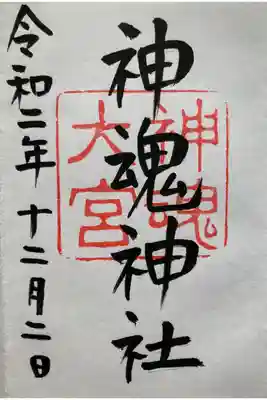 神魂神社
神魂
大宮
令和二年 十二月二日